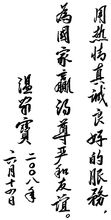 用热情真诚良好的服务，
为国家赢得尊严和友谊。
温家宝
二〇〇八年
六月十四日